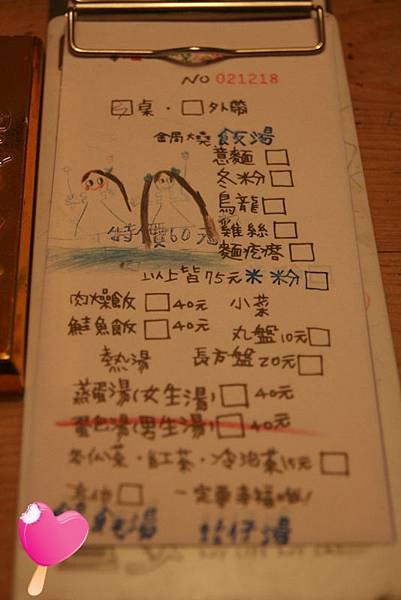 NO 021218
桌 · 外帶
鍋燒 飯湯
意麵
冬粉
烏龍
雞絲
特價60元
麵疙瘩
以上皆75元 米粉
肉燥飯 40元 小菜
鮭魚飯 40元 丸盤10元
熱湯 長方盤20元
蒸蛋湯(女生湯) 40元
蛋包湯(男生湯) 40元
冬仙茶·紅茶·冷泡茶15元
其他 一定要幸福哦!